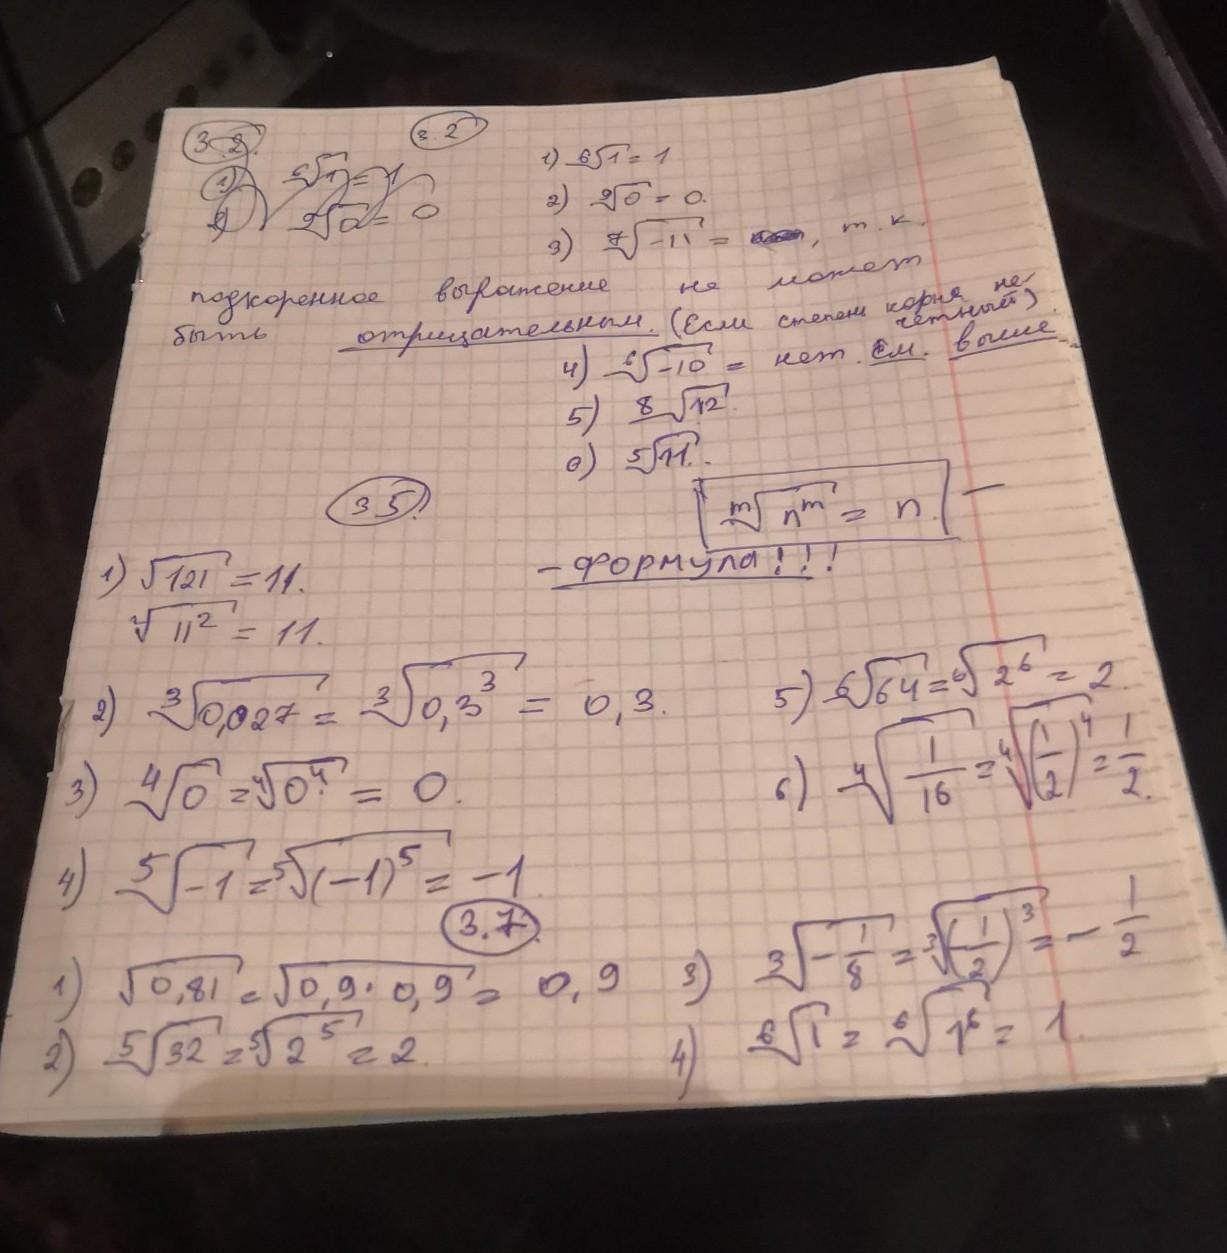 3.2.
3.2
1) ⁶√1 = 1
2) ⁹√0 = 0
1) ⁶√1 = 1
2) ⁹√0 = 0.
3) ⁷√-11 = , т.к.
подкоренное выражение не может
быть отрицательным. (Если степень корня не-
четный)
4) ⁶√-10 = нет. см. выше
5) ⁸√12.
6) ⁵√11.
3.5.
ᵐ√nᵐ = n. —
- формула!!!
1) √121 = 11.
²√11² = 11.
2) ³√0,027 = ³√0,3³ = 0,3.
3) ⁴√0 = ⁴√0⁴ = 0.
4) ⁵√-1 = ⁵√(-1)⁵ = -1.
5) ⁶√64 = ⁶√2⁶ = 2.
6) ⁴√1/16 = ⁴√(1/2)⁴ = 1/2.
3.7.
1) √0,81 = √0,9·0,9 = 0,9
2) ⁵√32 = ⁵√2⁵ = 2.
3) ³√-1/8 = ³√(1/2)³ = -1/2
4) ⁶√1 = ⁶√1⁶ = 1.